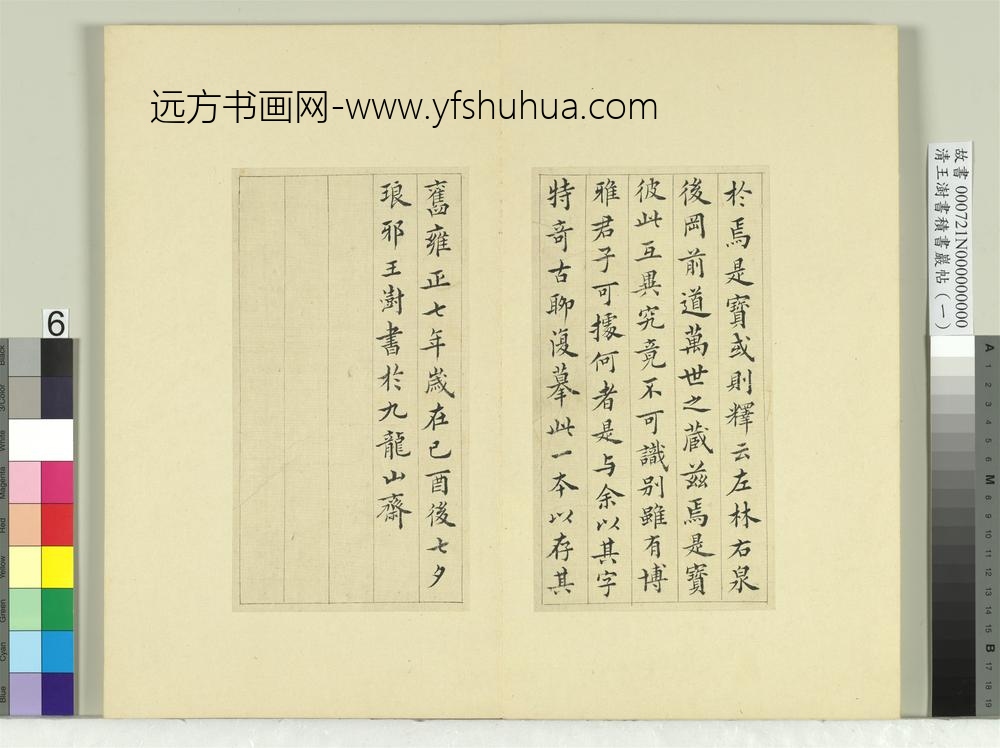 远方书画网-www.yfshuhua.com
於焉是寶或則釋云左林右泉
後岡前道萬世之蔵兹焉是寶
彼此互異究竟不可識别雖有博
雅君子可據何者是与余以其字
特奇古聊復摹此一本以存其
舊雍正七年嵗在己酉後七夕
琅邪王澍書於九龍山齋
故書 000721N000000000
清王澍書積書巖帖（一）
6
Black
3/Color
White
Magenta
Red
Yellow
Green
Cyan
Blue
A
1
2
3
4
5
6
M
8
9
10
11
12
13
14
15
B
17
18
19